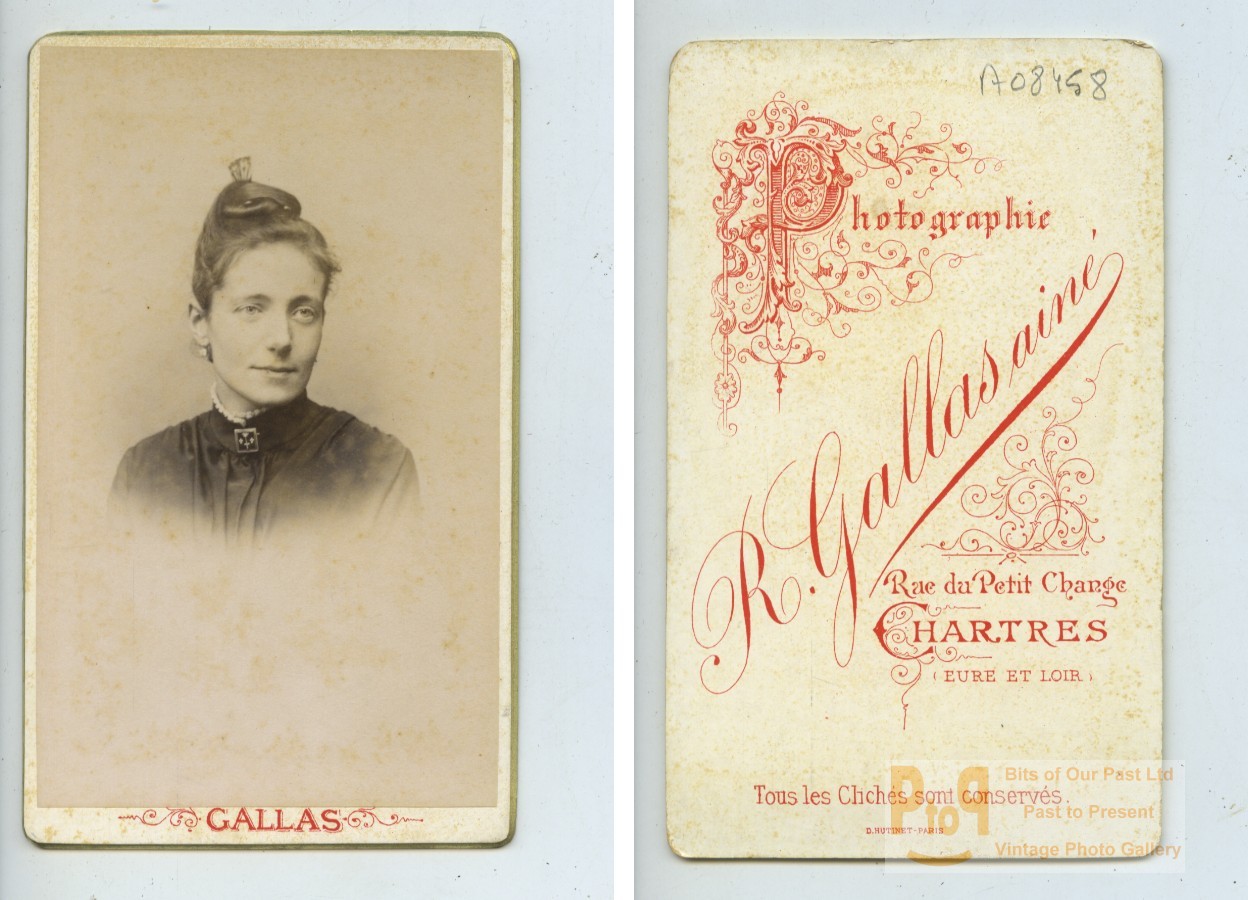 GALLAS
A08458
Photographie
R. Gallas ainé
Rue du Petit Change
CHARTRES
(EURE ET LOIR)
Tous les Clichés sont conservés.
D. HUTINET - PARIS
PtoP
Bits of Our Past Ltd
Past to Present
Vintage Photo Gallery